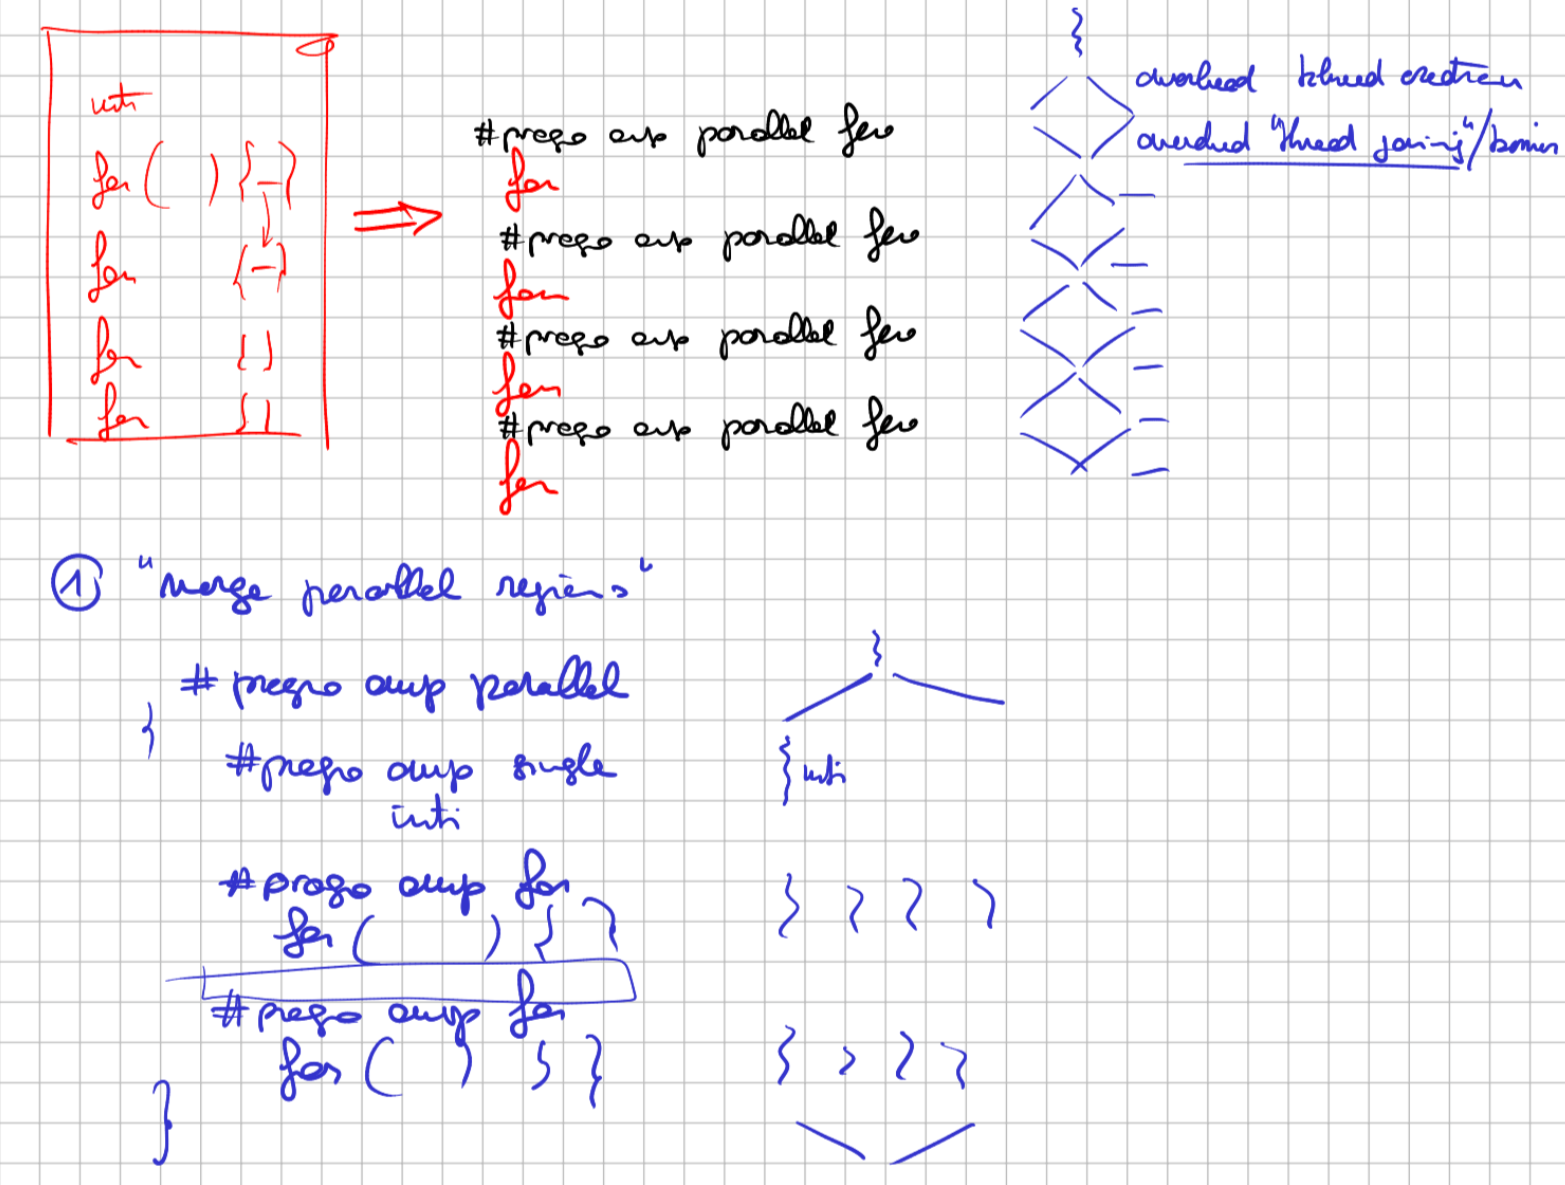 init
for ( ) { — }
for { — }
for { }
for { }
#pragma omp parallel for
for
#pragma omp parallel for
for
#pragma omp parallel for
for
#pragma omp parallel for
for
overhead thread creation
overhead "thread joining"/barrier
① "Merge parallel regions"
# pragma omp parallel
{
#pragma omp single
init
#pragma omp for
for ( ) { }
#pragma omp for
for ( ) { }
}
init